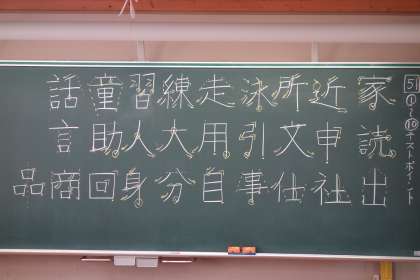 51 ①〜⑩ テストポイント
家近所泳走練習童話
読申文引用大人助言
出社仕事自分身回商品